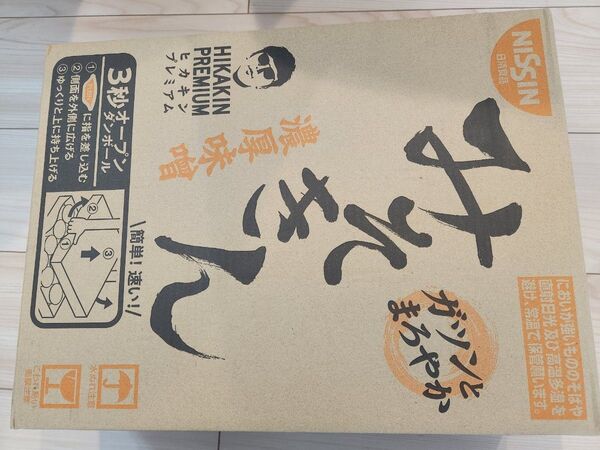 NISSIN
日清食品
みそきん
HIKAKIN
PREMIUM
ヒカキン
プレミアム
濃厚味噌
ガツンと
まろやか
3秒オープン
ダンボール
①に指を差し込む
②側面を外側に広げる
③ゆっくりと上に持ち上げる
①
②
③
\簡単!速い!/
においが強いもののそばや
直射日光及び高温多湿を
避け、常温で保管願います。
水ぬれ注意